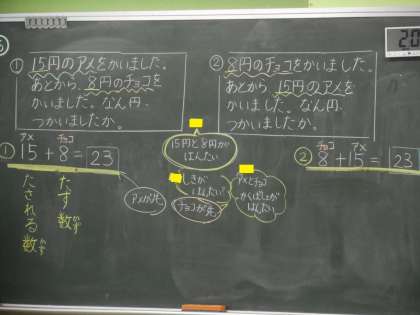 ① 15円のアメをかいました。
あとから、8円のチョコを
かいました。なん円、
つかいましたか。
② 8円のチョコをかいました。
あとから 15円のアメを
かいました。なん円、
つかいましたか。
① アメ チョコ
15 + 8 = 23
たされる数
たす数
15円と8円が
はんたい
しきが
はんたい?
チョコが先
アメが先
アメとチョコ
はんたい
② チョコ アメ
8 + 15 = 23